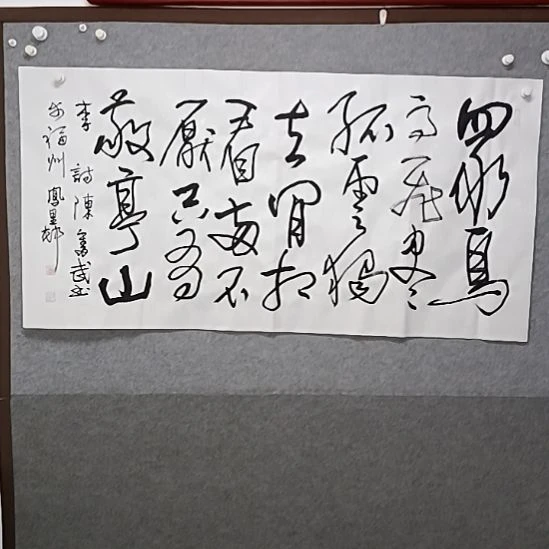 眾鳥
高飛盡
孤雲獨
去閒相
看兩不
厭只有
敬亭山
李詩陳武書
福州鳳